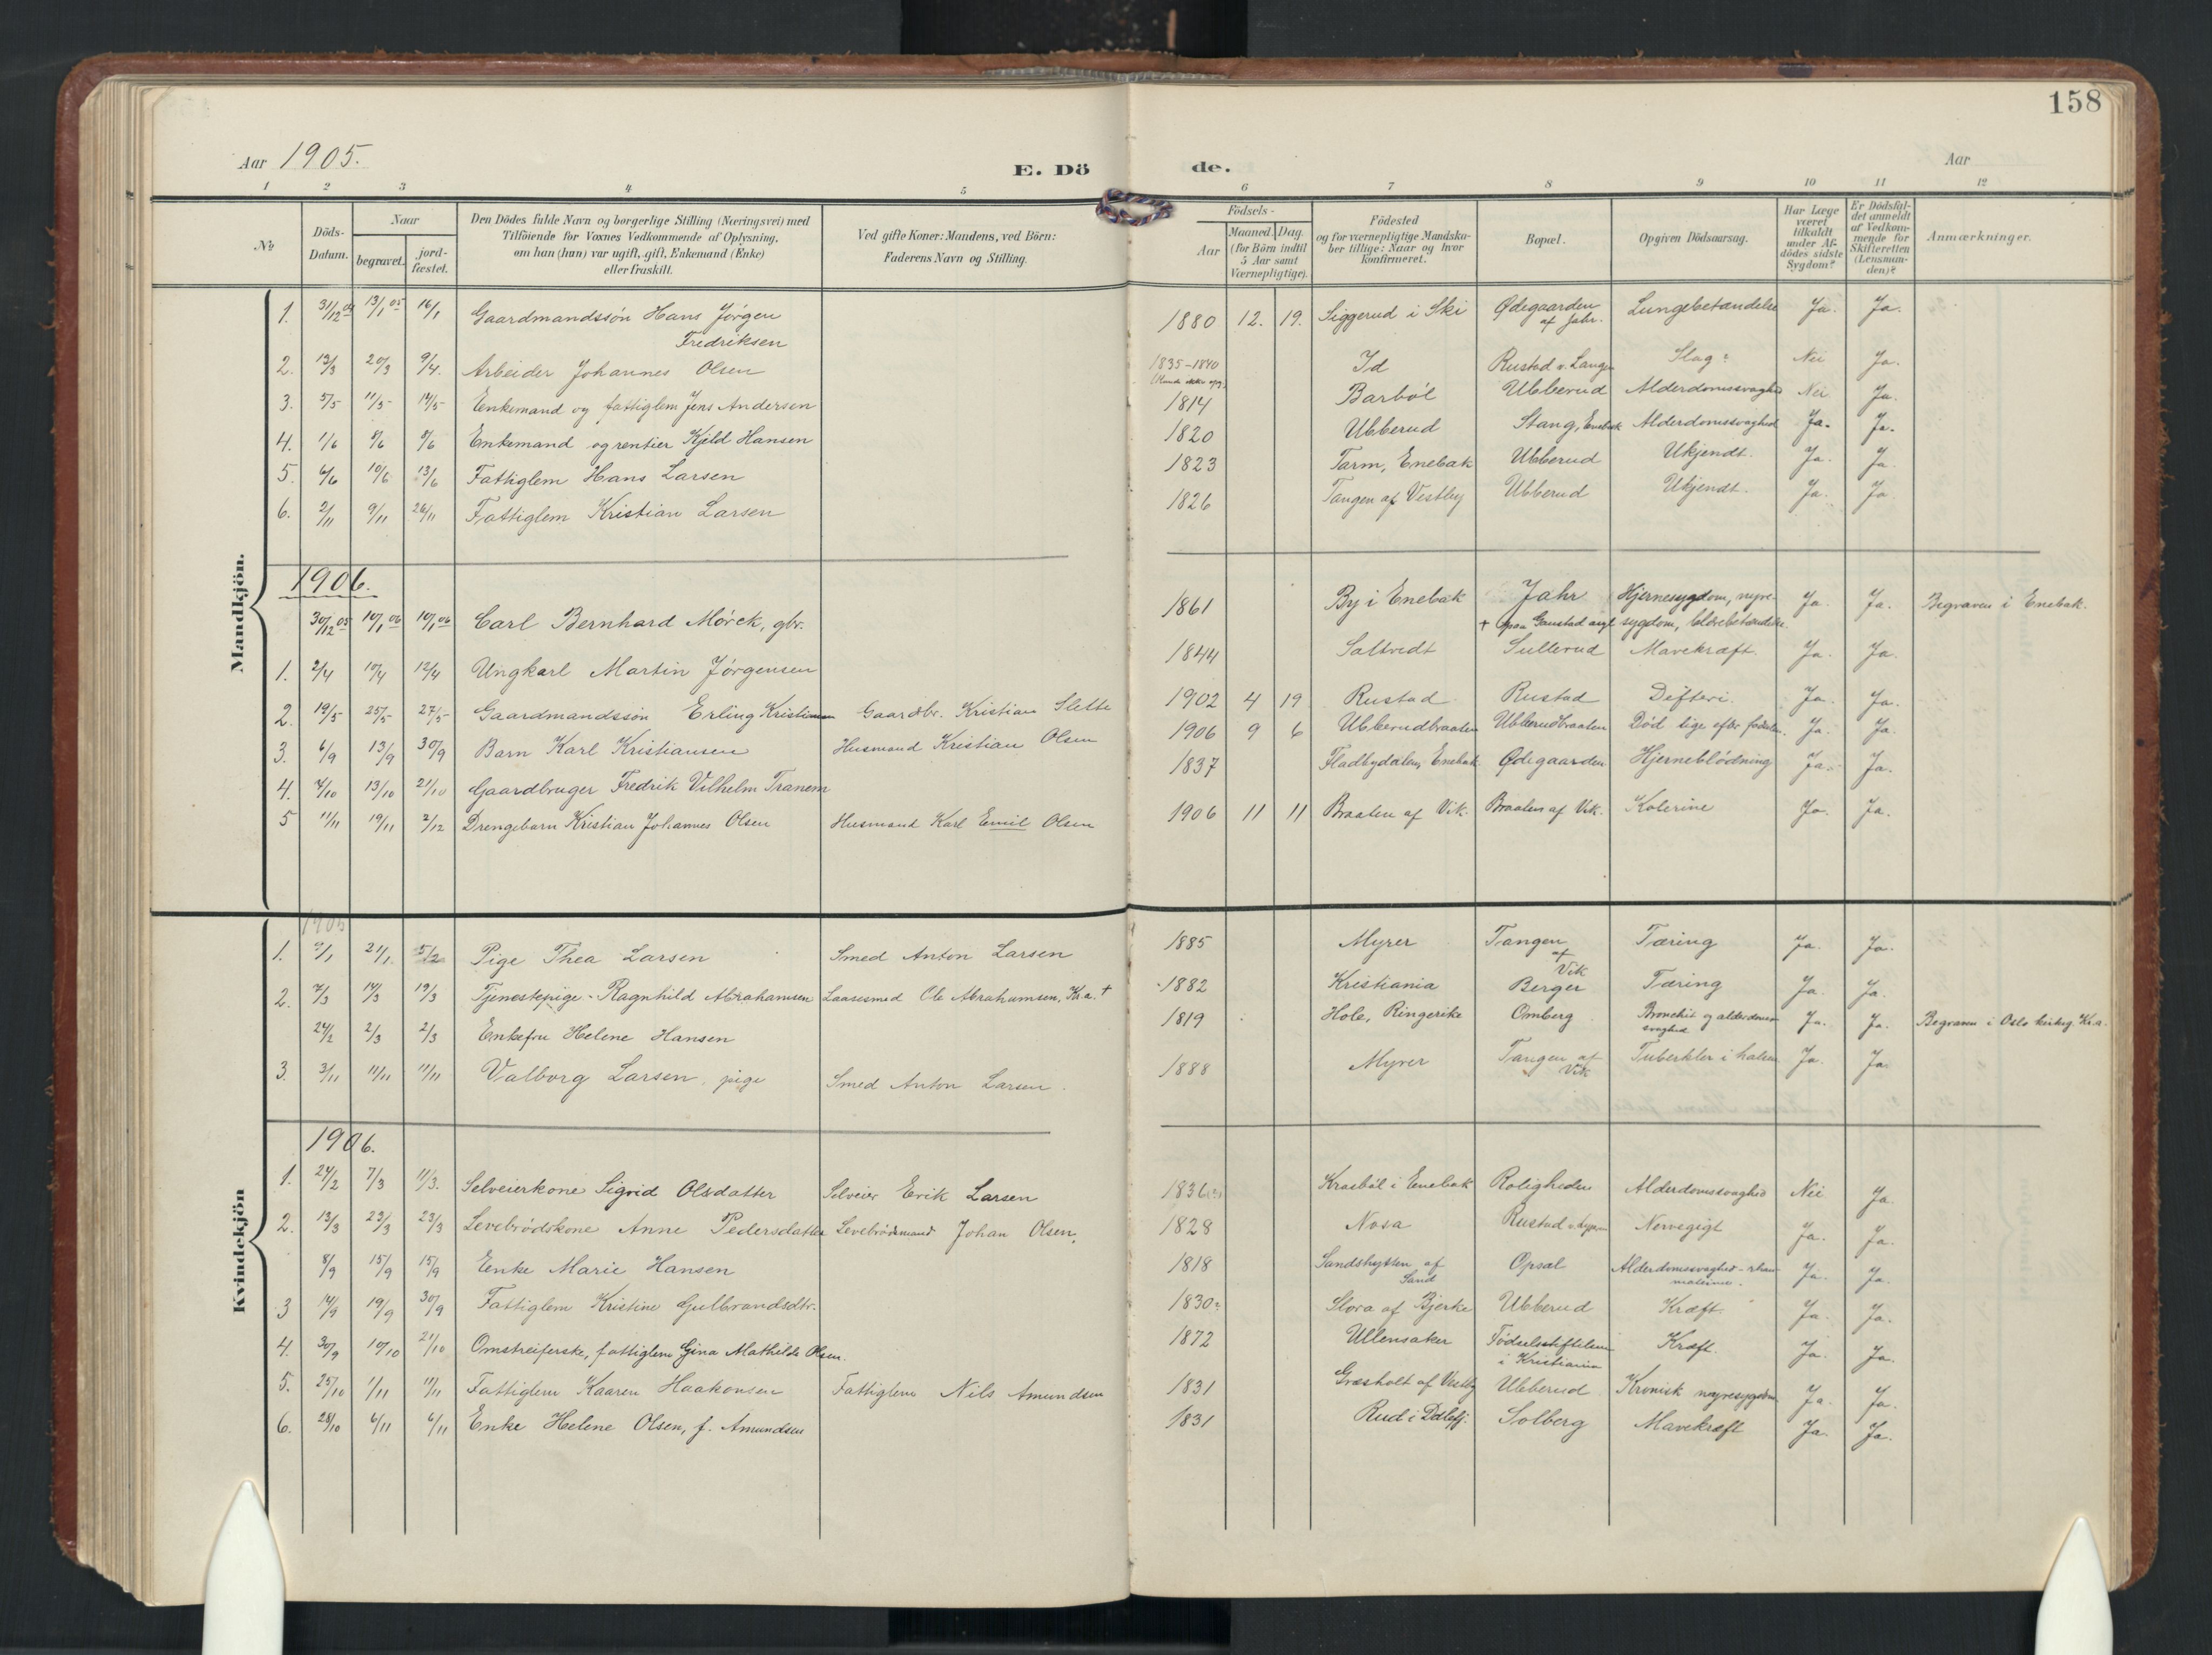 158
Aar 1905.
E. Döde.
Aar
1 2 3 4 5 6 7 8 9 10 11 12
No
Döds-Datum.
Naar
begravet.
jord-fæstet.
Den Dödes fulde Navn og borgerlige Stilling (Næringsvei) med
Tilföiende for Voxnes Vedkommende af Oplysning,
om han (hun) var ugift, gift, Enkemand (Enke)
eller fraskilt.
Ved gifte Koner: Mandens, ved Börn:
Faderens Navn og Stilling.
Födsels-
Aar
Maaned. Dag.
(for Börn indtil
5 Aar samt
Værnepligtige).
Födested
og for værnepligtige Mandska-
ber tillige: Naar og hvor
konfirmeret.
Bopæl.
Opgiven Dödsaarsag.
Har Læge
været
tilkaldt
under Af-
dödes sidste
Sygdom?
Er Dödsfal-
det anmeldt
af Vedkom-
mende for
Skifteretten
(Lensman-
den)?
Anmærkninger.
Mandkjön.
1. 31/12 04 13/1 05 16/1 Gaardmandssön Hans Jörgen Fredriksen 1880 12. 19. Siggerud i Ski Ödegaarden af Jahr. Lungebetændelse Ja. Ja.
2. 13/3 20/3 9/4. Arbeider Johannes Olsen 1835-1840 Id Rustad v. Langen Slag? Nei Ja.
3. 5/5 11/5 14/5 Enkemand og fattiglem Jens Andersen 1814 Barböl Ubberud Alderdomssvaghed Nei Ja.
4. 1/6 8/6 8/6 Enkemand og rentier Kjild Hansen 1820 Ubberud Stang, Enebak Alderdomssvaghed Ja. Ja.
5. 6/6 10/6 13/6 Fattiglem Hans Larsen 1823 Tarm, Enebak Ubberud Ukjendt. Ja. Ja
6. 2/11 9/11 26/11 Fattiglem Kristian Larsen 1826 Tangen af Vestby Ubberud Ukjendt. Ja. Ja
1906.
30/12 05 10/1 06 10/1 06 Carl Bernhard Mörck, gbr. 1861 By i Enebak Jahr † paa Gaustad asyl Hjernesygdom, nyre-sygdom, blærebetændelse. Ja Ja. Begraven i Enebak.
1. 2/4 10/4 12/4 Ungkarl Martin Jörgensen 1844 Saltvedt Sullerud Mavekræft. Ja. Ja.
2. 19/5 25/5 27/5 Gaardmandssön Erling Kristiansen Gaardbr. Kristian Slette 1902 4 19 Rustad Rustad Difteri. Ja. Ja.
3. 6/9 13/9 30/9 Barn Karl Kristiansen Husmand Kristian Olsen 1906 9 6 Ubberudbraaten Ubberudbraaten Död lige efter födselen. Ja. Ja.
4. 7/10 13/10 21/10 Gaardbruger Fredrik Vilhelm Tranem 1837 Fladbydalen, Enebak Ödegaarden Hjerneblödning Ja. Ja.
5 11/11 19/11 2/12 Drengebarn Kristian Johannes Olsen Husmand Karl Emil Olsen 1906 11 11 Braaten af Vik. Braaten af Vik. Kolerine Ja. Ja.
Kvindekjön
1905
1. /1 21/1. 5/2 Pige Thea Larsen Smed Anton Larsen 1885 Myrer Tangen af Vik Tæring Ja. Ja.
2. 7/3 14/3 19/3 Tjenestepige Ragnhild Abrahamsen Laasesmed Ole Abrahamsen, Kr.a. † 1882 Kristiania Berger Tæring Ja. Ja.
24/2 2/3 2/3 Enkefru Helene Hansen 1819 Hole, Ringerike Omberg Bronchit og alderdomssvaghed Ja. Ja. Begraven i Oslo kirkeg. Kr.a.
3. 3/11 11/11 11/11 Valborg Larsen, pige Smed Anton Larsen. 1888 Myrer Tangen af Vik Tuberkler i halsen Ja. Ja.
1906.
1. 24/2 7/3 11/3. Selveierkone Sigrid Olsdatter Selveier Erik Larsen 1836 Krasböl i Enebak Roligheden Alderdomssvaghed Nei Ja
2. 13/3 23/3 23/3 Levebrödskone Anne Pedersdatter Levebrödsmand Johan Olsen, 1828 Nosa Rustad Nervegigt Ja. Ja.
8/9 15/9 15/9 Enke Marie Hansen 1818 Sandshytten af Sand Opsal Alderdomssvaghed - rheumatisme. Ja. Ja.
3 14/9 19/9 30/9 Fattiglem Kristine Gulbrandsdtr. 1830? Slora af Bjerke Ubberud Kræft. Ja. Ja.
4. 30/9 10/10 21/10 Omstreiferske, fattiglem Gina Mathilde Olsen. 1872 Ullensaker Födselsstiftelsen i Kristiania Kræft. Ja. Ja.
5. 25/10 1/11 11/11 Fattiglem Kaaren Haakonsen Fattiglem Nils Amundsen 1831 Græsholt af Vestby Ubberud Kronisk nyresygdom Ja. Ja.
6. 28/10 6/11 6/11 Enke Helene Olsen, f. Amundsen 1831 Rud i Solberg Mavekræft Ja. Ja.